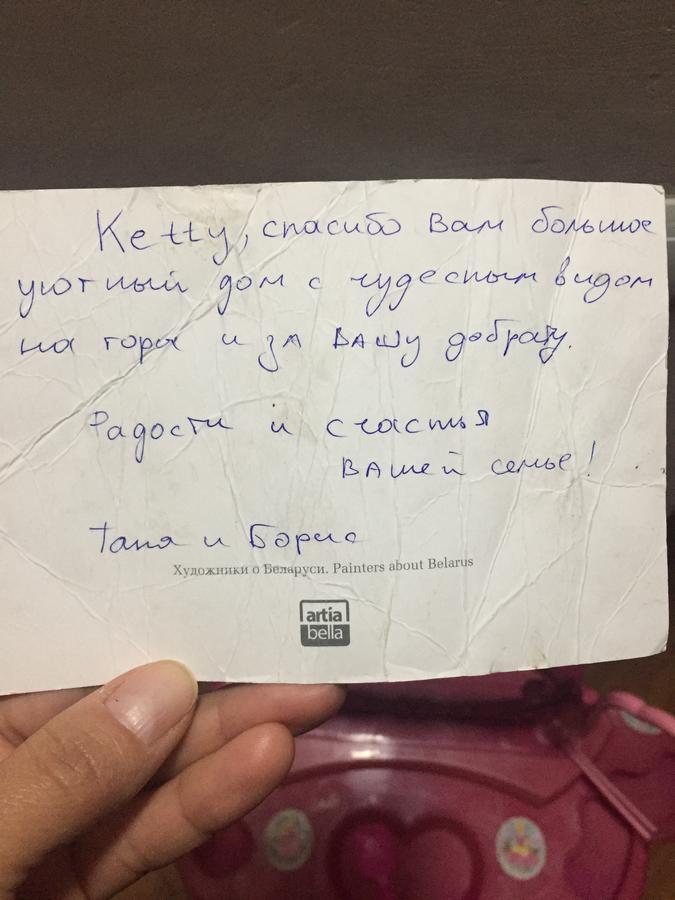 Ketty, спасибо Вам большое
уютный дом с чудесным видом
на горы и за ВАШУ доброту.
Радости и счастья
ВАШЕЙ семье!
Таня и Борис
Художники о Беларуси. Painters about Belarus
artia
bella